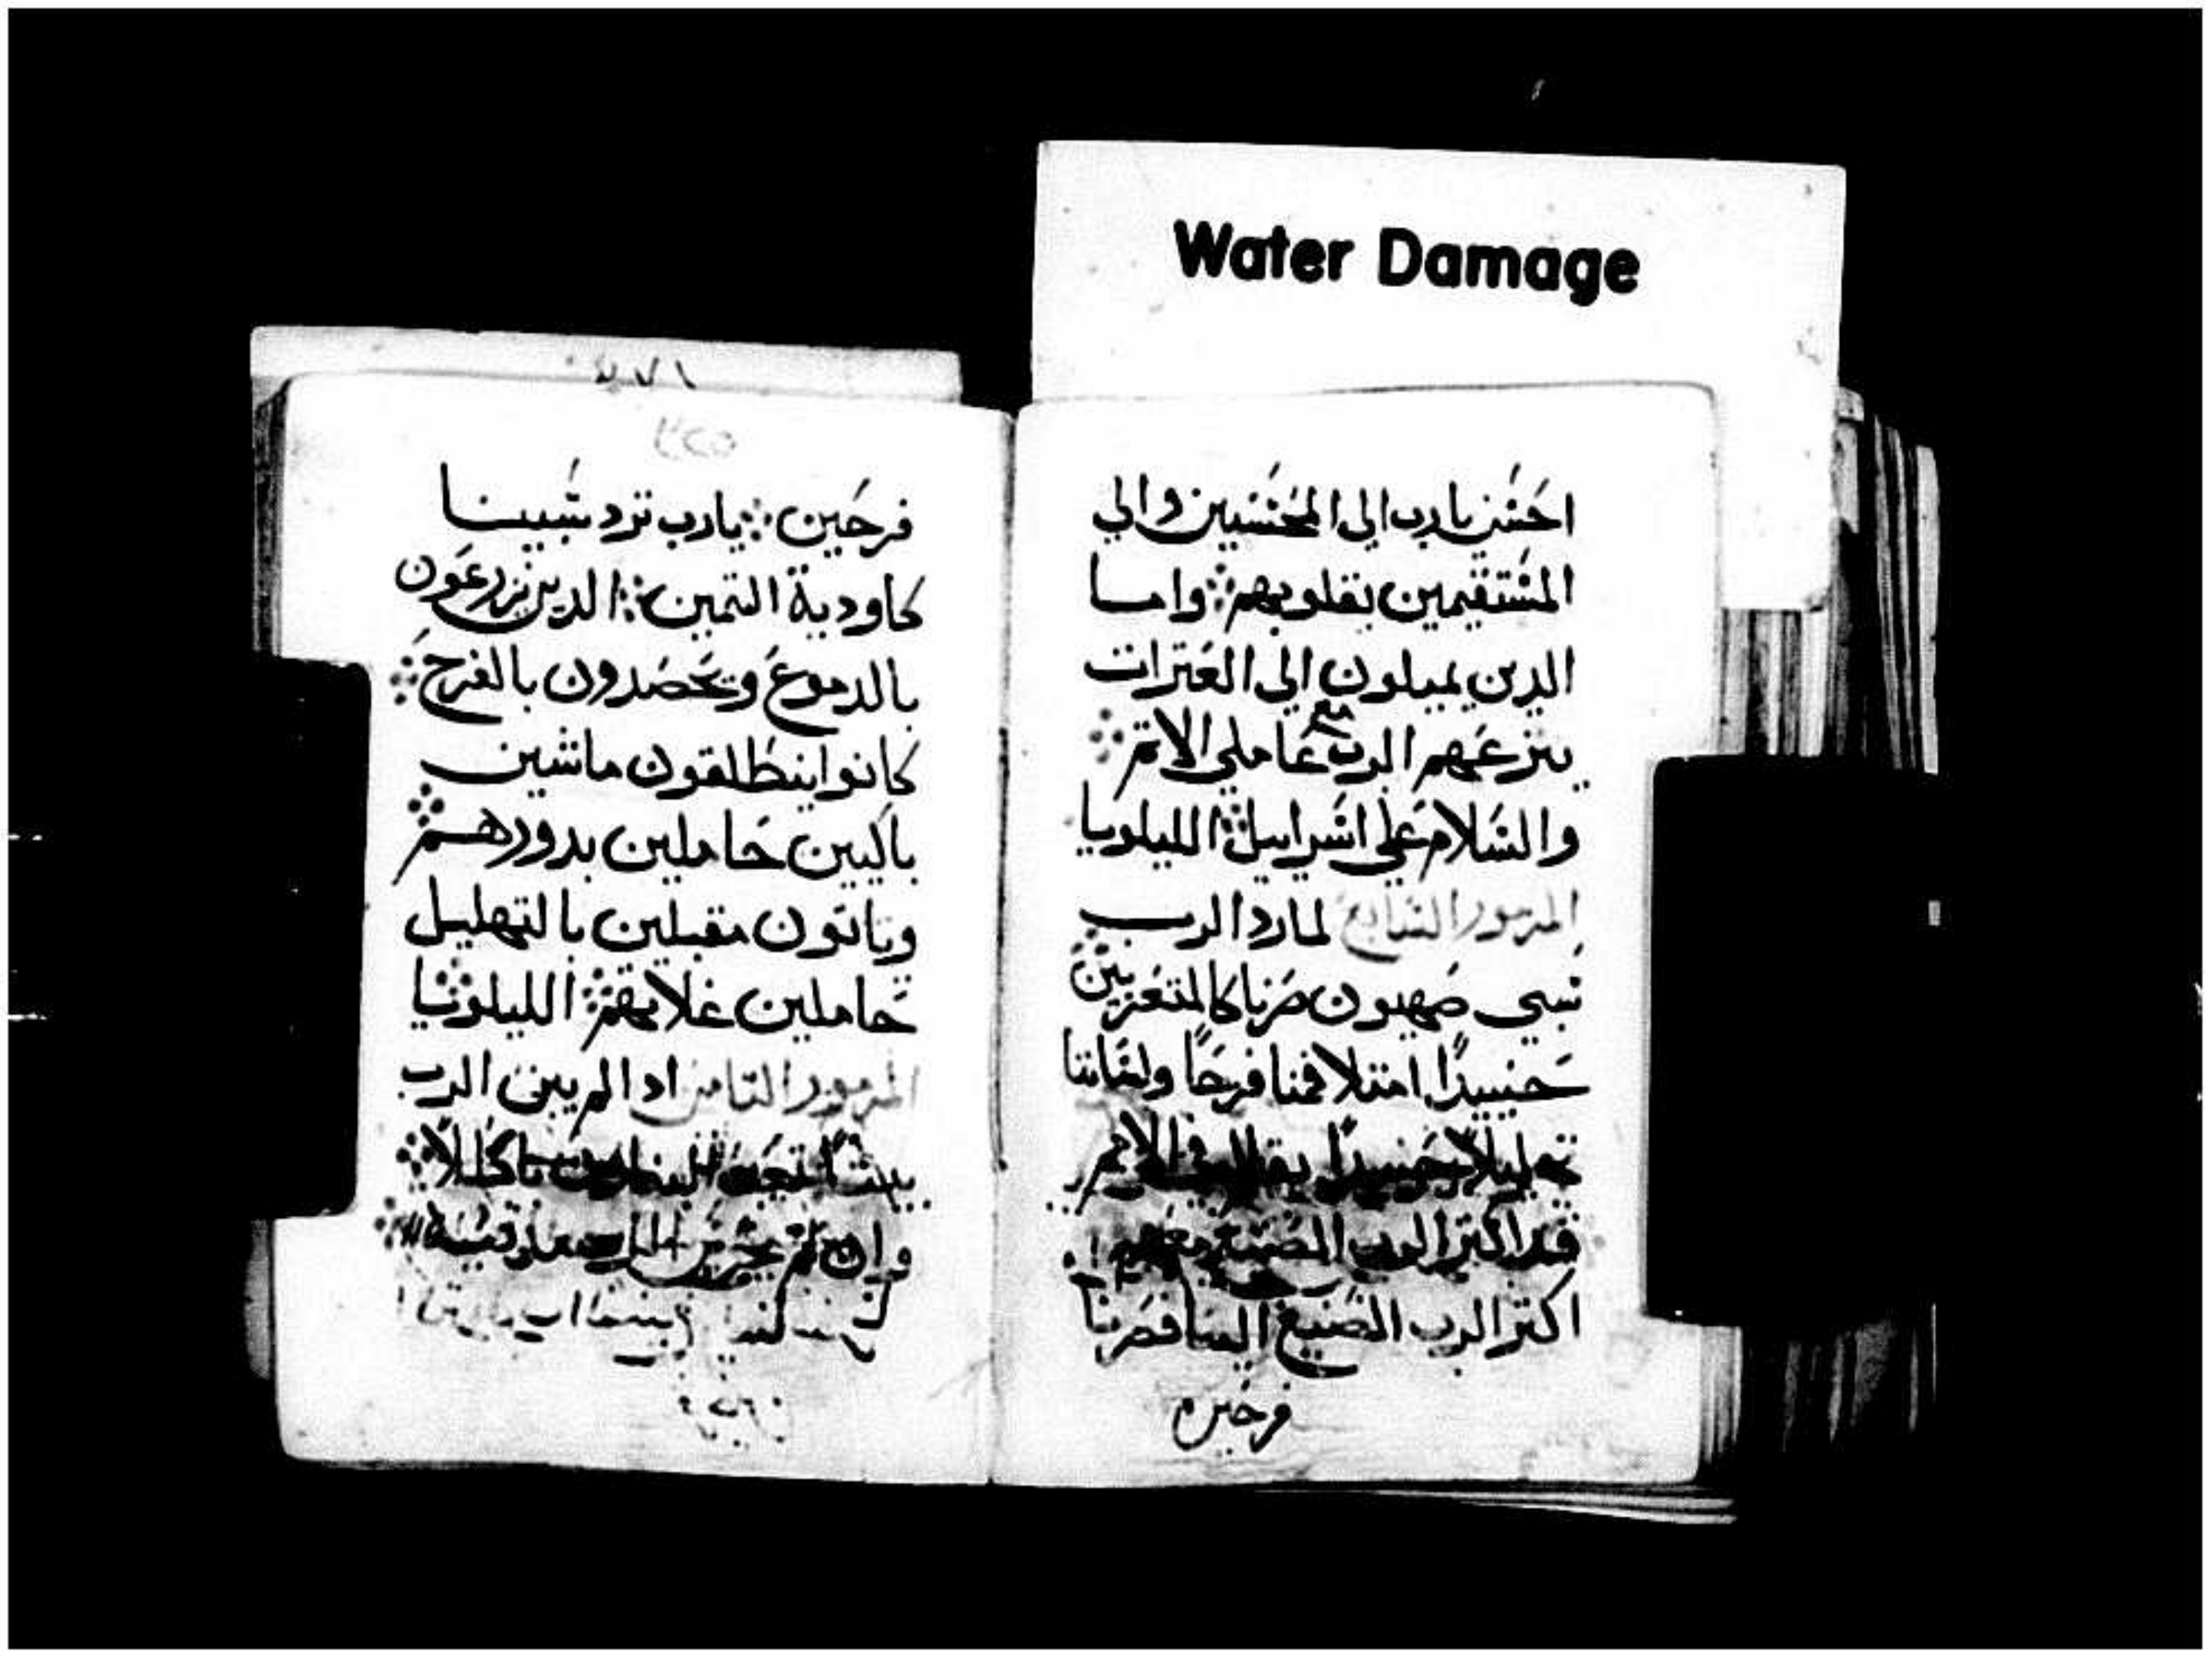 Water Damage
احسن يا رب الي المحسنين والي
المستقيمين بقلوبهم واما
الدين يميلون الي العترات
ينزعهم الرب مع عاملي الاتم
والسلام علي اسراييل الليلويا
المزمور السابع لما رد الرب
سبي صهيون صرنا كالمتعزيين
حينيدًا امتلا فمنا فرحًا ولساننا
تهليلاً حينيدًا يقال في الامم
قد اكتر الرب الصنيع معهم
اكتر الرب الصنيع الينا فصرنا
فرحين
١٧٤
٣٢٥
فرحين يا رب ترد سبينا
كاودية التيمن الدين يزرعون
بالدموع ويحصدون بالفرح
كانوا ينطلقون ماشين
باكيين حاملين بدورهم
وياتون مقبلين بالتهليل
حاملين غلاتهم الليلويا
المزمور التامن اد الم يبن الرب
بيتًا البنا باطلاً
وان لم يحرس